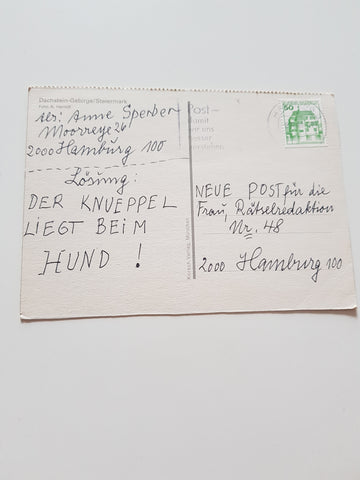 Dachstein-Gebirge/Steiermark
Abs: Anne Sperber
Moorreye 26
2000 Hamburg 100
Lösung:
DER KNUEPPEL
LIEGT BEIM
HUND !
Post –
damit
wir uns
besser
verstehen.
50
NEUE POST für die
Frau, Rätselredaktion
Nr. 48
2000 Hamburg 100